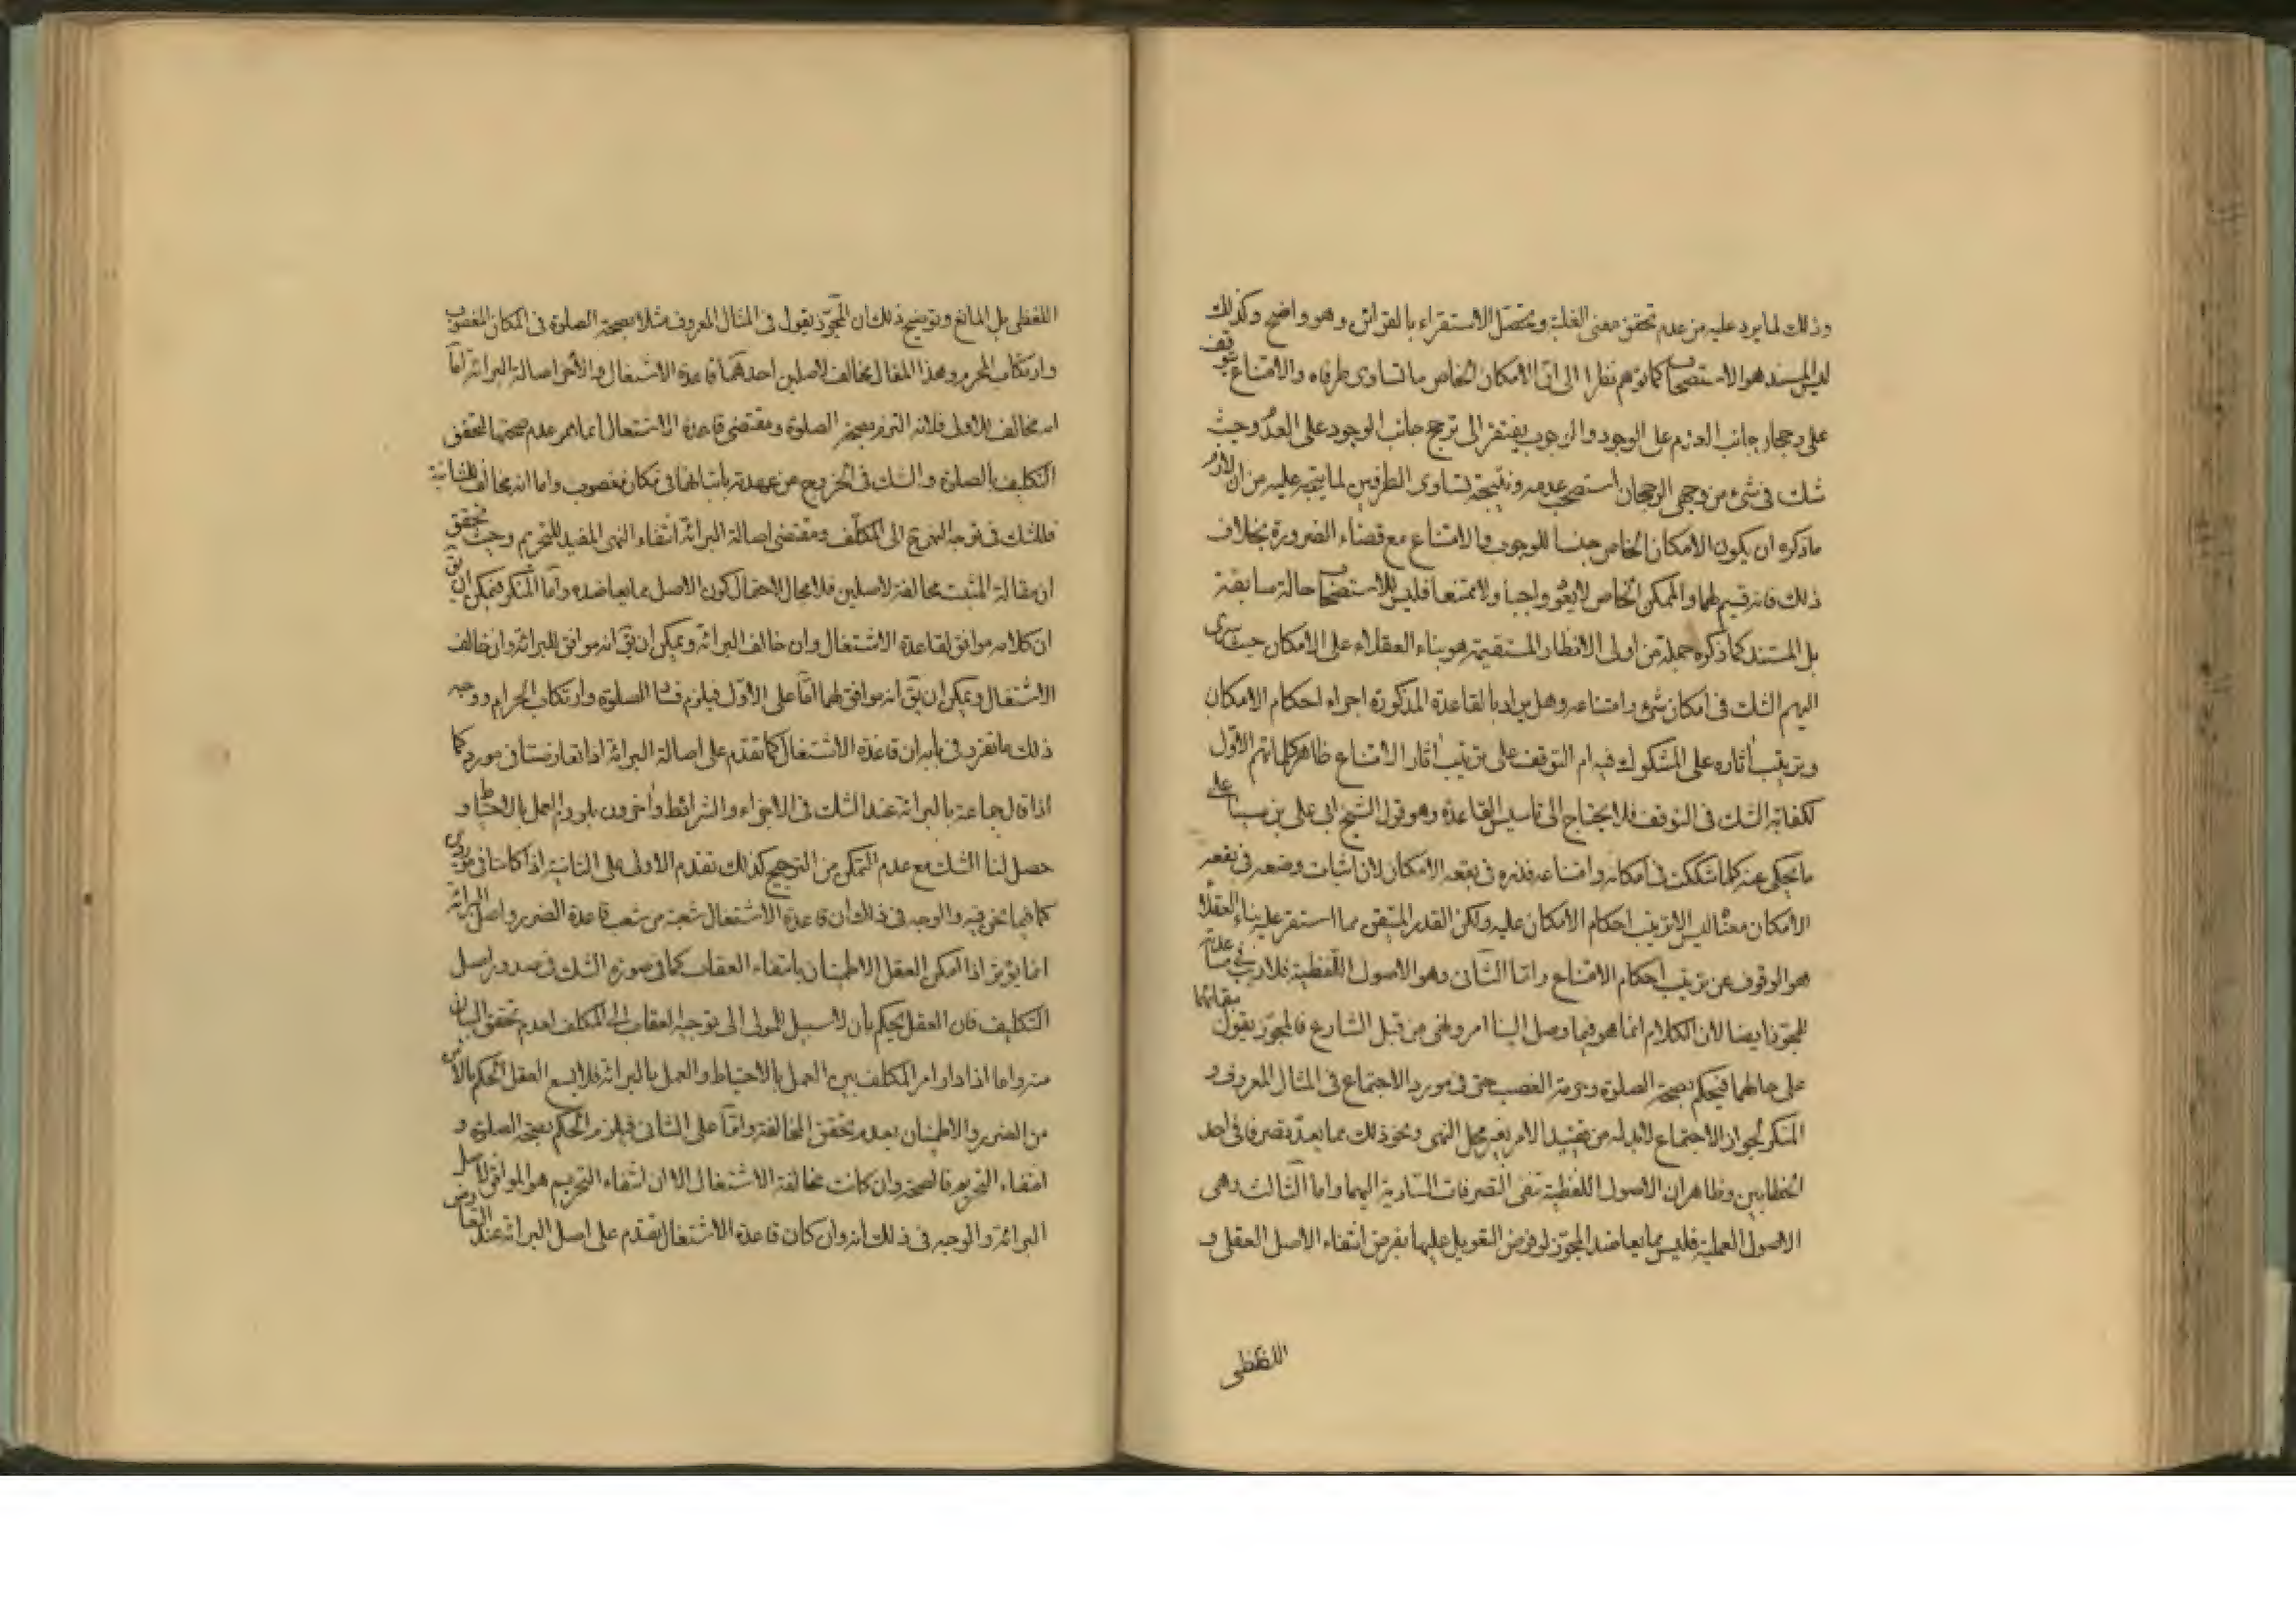 وذلك لما يرد عليه من عدم تحقق معنى الغلبة ويحتمل الاستقراء بالفرائن وهو واضح وكذلك
ليس المستند هو الاستصحاب كما توهم نظرا الى ان الامكان الخاص ما تساوى طرفاه والامتناع يتوقف
على رجحان جانب العدم على الوجود والوجوب يفتقر الى ترجح جانب الوجود على العدم وحيث
شك فى شئ من وجهى الرجحان استصحب عدمه ونتيجته تساوى الطرفين لما يتجه عليه من ان لازم
ماذكره ان يكون الامكان الخاص جنسا للوجوب والامتناع مع قضاء الضرورة بخلاف
ذلك فانه قسيم لهما والممكن الخاص لا يقع واجبا ولا ممتنعا فليس للاستصحاب حالة سابقة
بل المستند كما ذكره جملة من اولى الانظار المستقيمة هو بناء العقلاء على الامكان حيث سرى
اليهم الشك فى امكان شئ وامتناعه وهل يراد بالقاعدة المذكورة اجراء احكام الامكان
وترتيب اثاره على المشكوك فيه ام التوقف على ترتيب اثار الامتناع ظاهر كلماتهم الاول
لكفاية الشك فى التوقف فلا يحتاج الى تاسيس القاعدة وهو قول الشيخ ابى على بن سينا على
ما يحكى عنه كلما شككت فى امكانه وامتناعه فذره فى بقعه الامكان لان اثبات وضعه فى بقعه
الامكان معناه ليس الا ترتيب احكام الامكان عليه ولكن القدر المتيقن مما استقر عليه بناء العقلاء
هو الوقوف عن ترتيب احكام الامتناع واما الثانى وهو الاصول اللفظية فلا ريب فى مساعدته
للمجوز ايضا لان الكلام انما هو فيما وصل الينا امر ونهى من قبل الشارع فالمجوز يقول ببقائهما
على حالهما فيحكم بصحة الصلوة وحرمة الغصب حتى فى مورد الاجتماع فى المثال المعروف و
المنكر لجواز الاجتماع لابد له من تقييد الامر بغير محل النهى ونحو ذلك مما يعد تصرفا فى احد
الخطابين وظاهر ان الاصول اللفظية تنفى التصرفات السارية اليهما واما الثالث وهى
الاصول العملية فليس مما يعاضد المجوز لو فرض التعويل عليها بفرض انتفاء الاصل العقلى و
اللفظى
اللفظى بل المانع وتوضيح ذلك ان المجوز يقول فى المثال المعروف مثلا بصحة الصلوة فى المكان المغصوب
وارتكاب المحرم وهذا المقال مخالف لاصلين احدهما قاعدة الاشتغال والاخر اصالة البرائة اما
انه مخالف للاول فلانه التزم بصحة الصلوة ومقتضى قاعدة الاشتغال انما هو عدم صحتها لتحقق
التكليف بالصلوة والشك فى الخروج من عهدته باتيانها فى مكان مغصوب واما انه مخالف للثانية
فللشك فى توجه النهى الى المكلف ومقتضى اصالة البرائة انتفاء النهى المفيد للتحريم وحيث تحقق
ان مقالة المثبت مخالفة لاصلين فلا مجال لاحتمال كون الاصل مما يعاضده واما المنكر فيمكن ان يق
ان كلامه موافق لقاعدة الاشتغال وان خالف البرائة ويمكن ان يق انه موافق للبرائة وان خالف
الاشتغال ويمكن ان يق انه موافق لهما اما على الاول فيلزم فساد الصلوة وارتكاب الحرام ووجه
ذلك ما تقرر فى بابه ان قاعدة الاشتغال كما تقدم على اصالة البرائة اذا تعارضتا فى مورد كما
اذا قال جماعة بالبرائة عند الشك فى الاجزاء والشرائط واخرون بلزوم العمل بالاحتياط و
حصل لنا الشك مع عدم التمكن من الترجيح كذلك تقدم الاولى على الثانية اذا كانتا فى موردين
كما فيما نحن فيه والوجه فى ذلك ان قاعدة الاشتغال شعبة من شعب قاعدة الضرر واصل البرائة
انما يؤثر اذا امكن العقل الاطمينان بانتفاء العقاب كما فى صورة الشك فى صدور اصل
التكليف فان العقل يحكم بان لا سبيل للمولى الى توجيه العقاب الى المكلف لعدم تحقق البيان
منه واما اذا دار امر المكلف بين العمل بالاحتياط والعمل بالبرائة فلا يسع العقل الحكم بالامن
من الضرر والاطمينان بعدم تحقق المخالفة واما على الثانى فيلزم الحكم بصحة الصلوة و
انتفاء التحريم فالصحة وان كانت مخالفة الاشتغال الا ان انتفاء التحريم هو الموافق لاصل
البرائة والوجه فى ذلك انه وان كان قاعدة الاشتغال تقدم على اصل البرائة عند التعارض